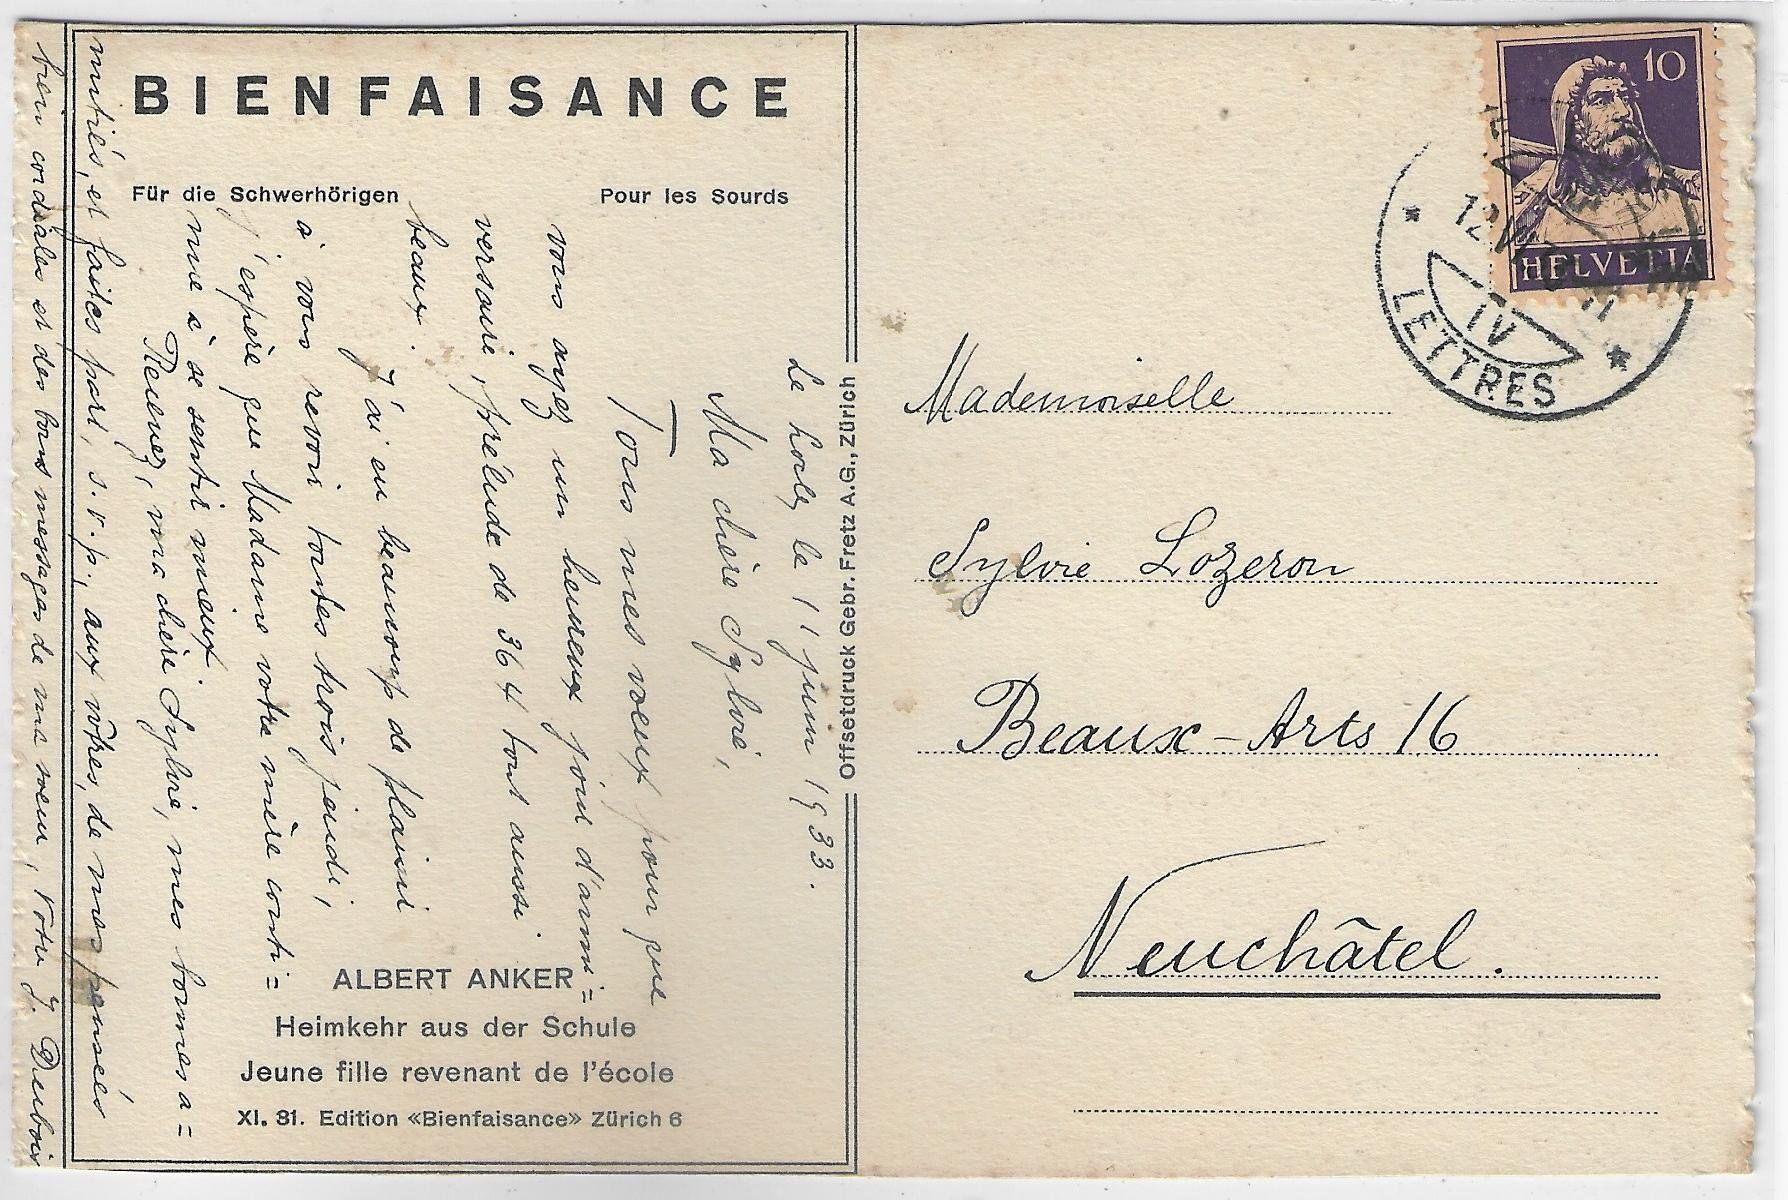 BIENFAISANCE
Für die Schwerhörigen
Pour les Sourds
Le Locle, le 11 juin 1933.
Ma chère Sylvie,
Tous mes vœux pour que
vous ayez un heureux jour d'anni=
versaire, prélude de 364 tout aussi
beaux.
J'ai eu beaucoup de plaisir
à vous revoir toutes trois jeudi,
j'espère que Madame votre mère conti=
nue à se sentir mieux.
Recevez, ma chère Sylvie, mes bonnes a=
mitiés, et faites part, s.v.p., aux vôtres, de mes pensées
bien cordiales et des bons messages de ma sœur, Votre J. Dubois
ALBERT ANKER
Heimkehr aus der Schule
Jeune fille revenant de l'école
XI. 31. Edition «Bienfaisance» Zürich 6
Offsetdruck Gebr. Fretz A.G., Zürich
10
HELVETIA
12.V
11
IV
LETTRES
Mademoiselle
Sylvie Lozeron
Beaux-Arts 16
Neuchâtel.